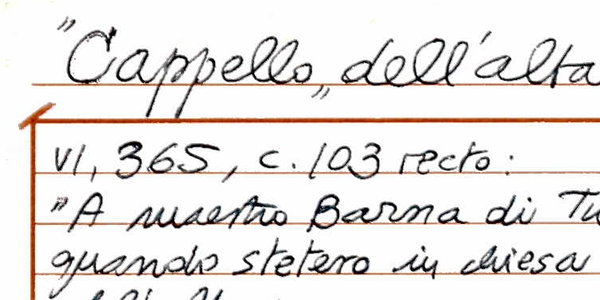 "Cappello„ dell'alta
VI, 365, c. 103 recto:
"A maestro Barna di Tu
quando stetero in chiesa